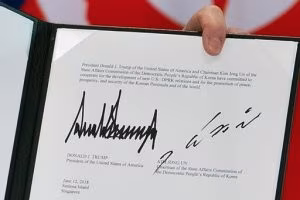 President Donald J. Trump of the United States of America and Chairman Kim Jong Un of the
State Affairs Commission of the Democratic People's Republic of Korea have committed to
cooperate for the development of new U.S.-DPRK relations and for the promotion of peace,
prosperity, and security of the Korean Peninsula and of the world.
DONALD J. TRUMP
President of the United States of America
KIM JONG UN
Chairman of the State Affairs Commission of
the Democratic People's Republic of Korea
June 12, 2018
Sentosa Island
Singapore